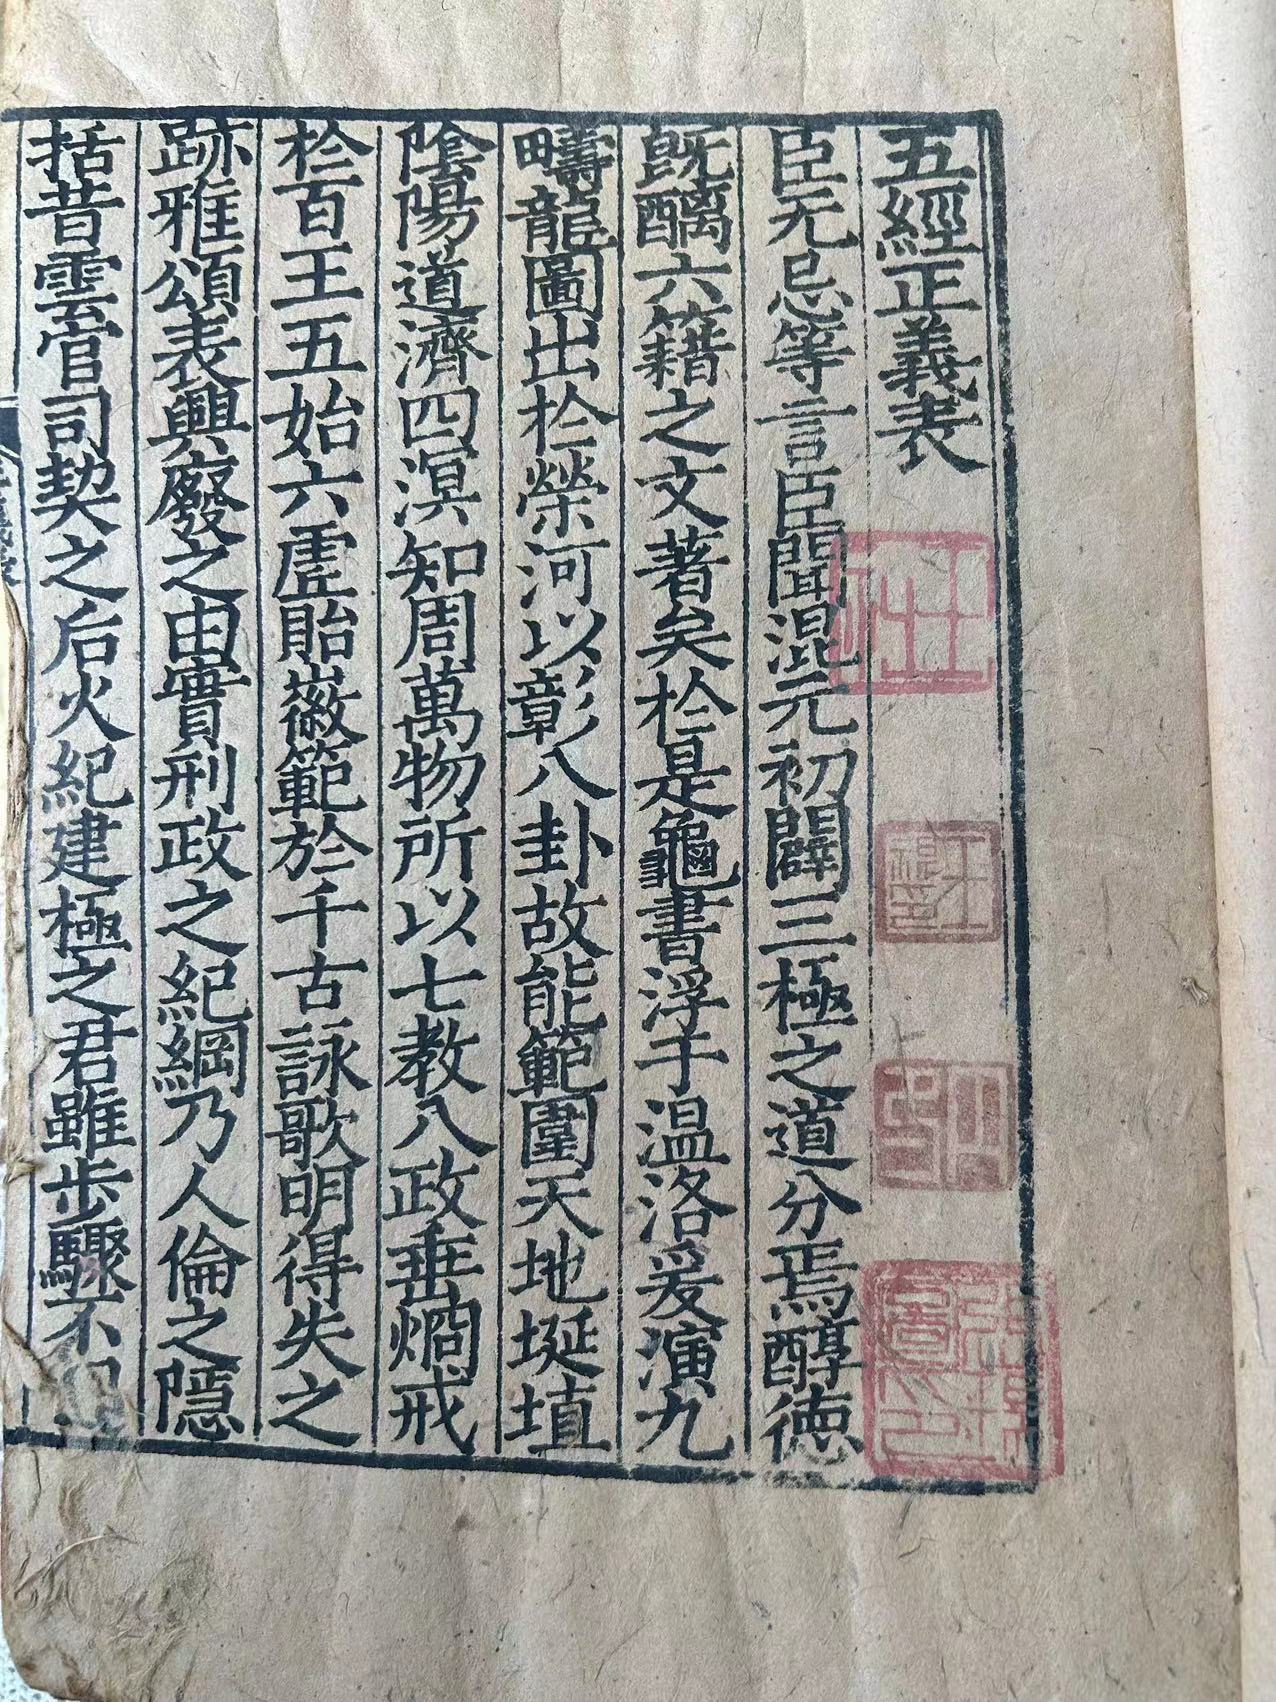 五經正義表
臣无忌等言臣聞混元初闢三極之道分焉醇德
旣醨六籍之文著矣於是龜書浮于温洛爰演九
疇龍圖出於榮河以彰八卦故能範圍天地埏埴
陰陽道濟四溟知周萬物所以七教八政垂烱戒
於百王五始六虛貽徽範於千古詠歌明得失之
跡雅頌表興廢之由實刑政之紀綱乃人倫之隱
括昔雲官司契之后火紀建極之君雖步驟不